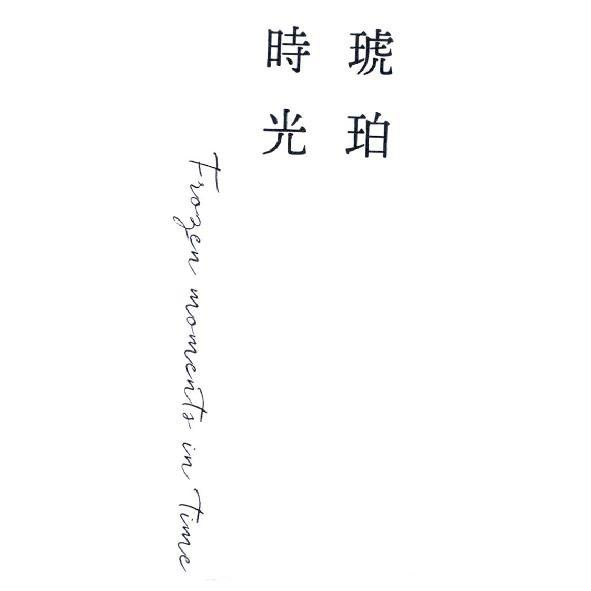 琥珀
時光
Frozen moments in Time